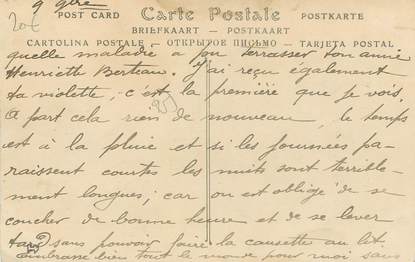 9 gbre
20€
POST CARD Carte Postale POSTKARTE
BRIEFKAART - POSTKAART
CARTOLINA POSTALE - ОТКРЫТОЕ ПИСЬМО - TARJETA POSTAL
quelle maladie a pu terrasser ton amie
Henriette Berteau. J'ai reçu également
ta violette, c'est la première que je vois.
A part cela rien de nouveau, le temps
est à la pluie et si les journées pa-
raissent courtes les nuits sont terrible-
ment longues; car on est obligé de se
coucher de bonne heure et de se lever
tard sans pouvoir faire la causette au lit.
embrasse bien tout le monde pour moi sans